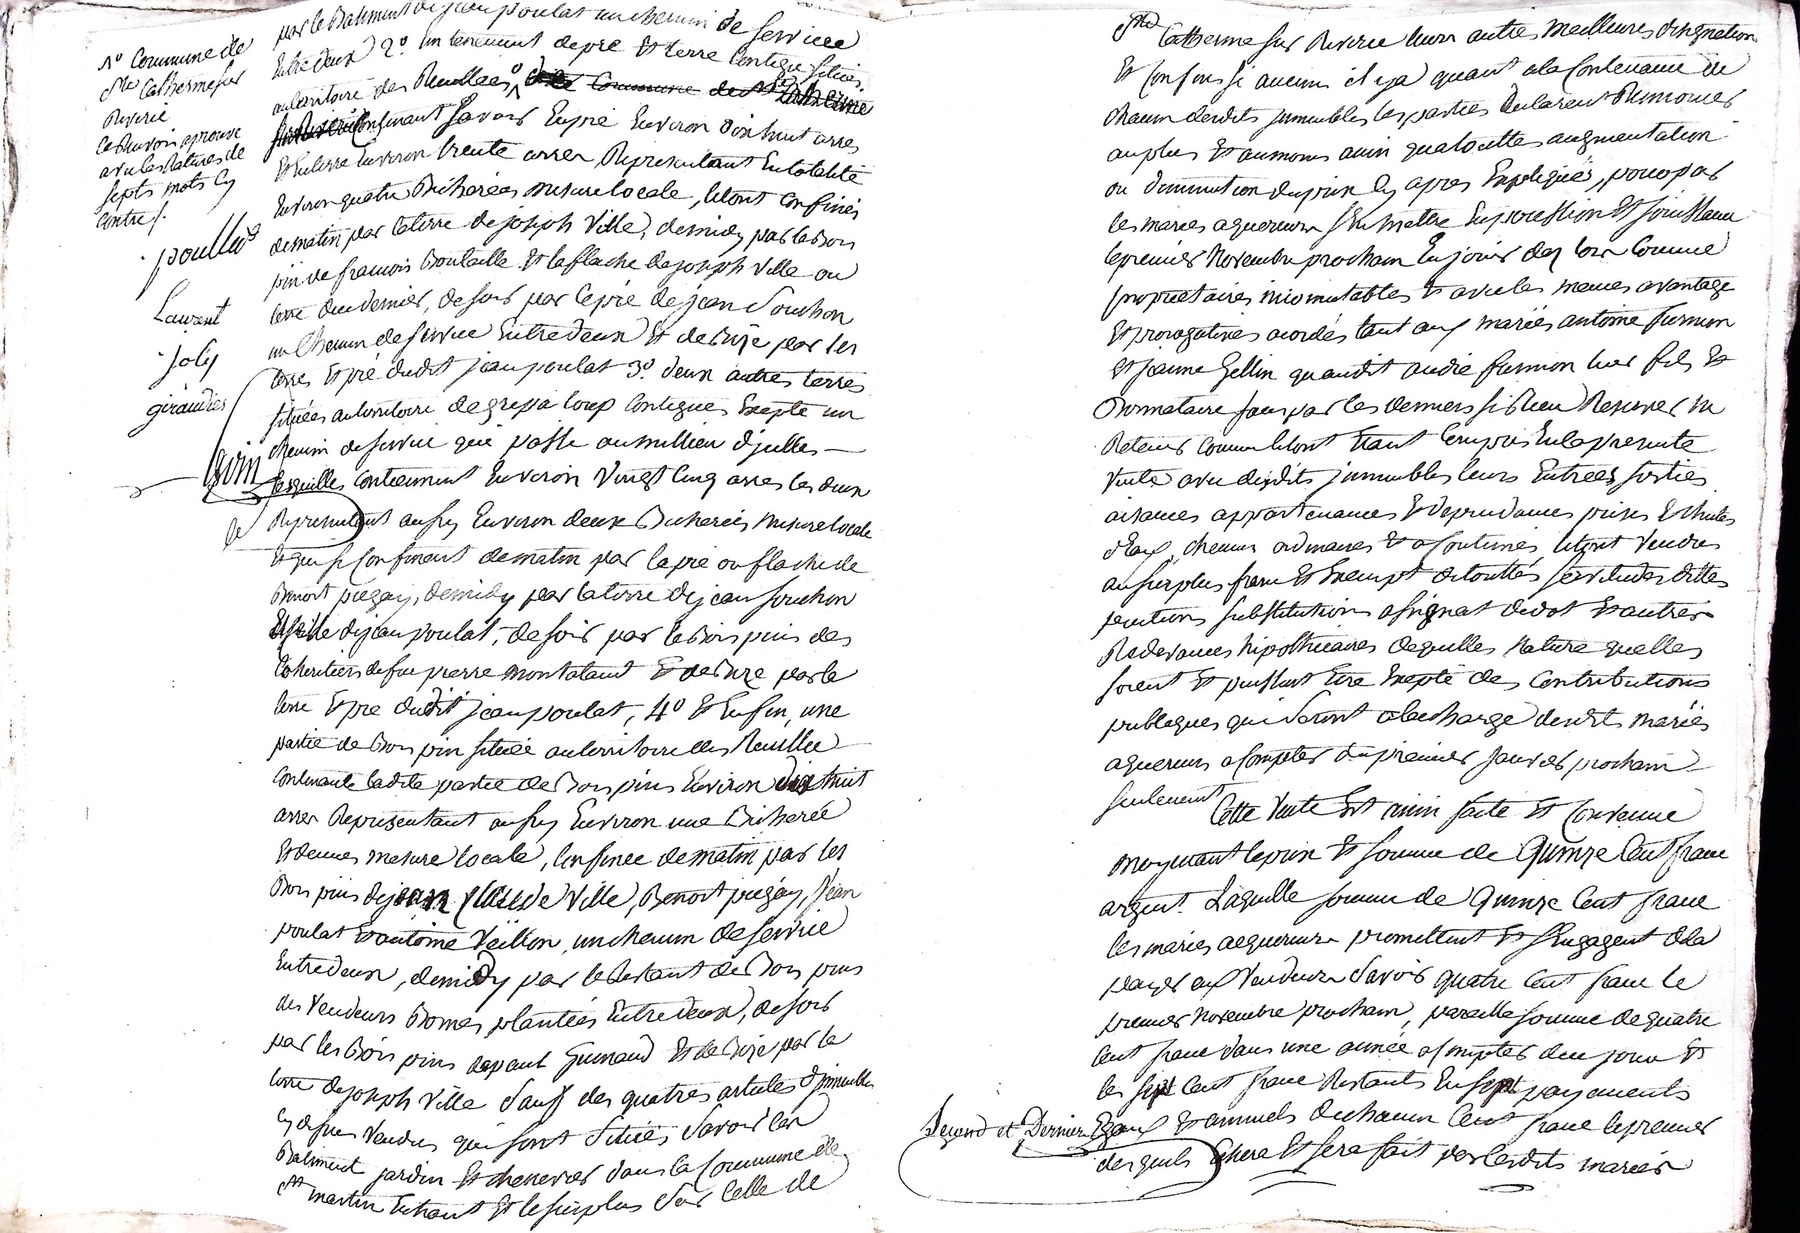 1º Commune de
Ste Catherine sur
Riverie
Ce Renvoi aprouvé
avec les Ratures de
septs mots Cy
contre /.
poullat
Laurent
Joly
giraudier
par le Batiment de jean poulat un chemin de service
Entredeux 2º. un tenement de pré Et terre Contigu situés
au territoire des Reuillées, de la Commune de Ste Catherine
sur Riverie Confinant Savoir En pré Environ dix huit arres
Et En terre Environ trente arres Representant En totalité
Environ quatre Bicherées mesure locale, letout Confinés
dematin par la terre de joseph Ville, demidy par le Bois
pin de francois Boutaille Et la flache de joseph Ville ou
terre du dernier, de soir par le pré de jean Souchon
un Chemin de service Entredeux Et de Bize par les
terres Et pré dudit jean poulat 3º. deux autres terres
situées au territoire de greppa loup Contigues Exepté un
chemin de service qui passe au millieu d'jcelles —
lesquelles contiennent Environ Vingt Cinq arres les deux
Representant aussy Environ deux Bicherées mesure locale
Et qui se Confinent dematin par le pré ou flache de
Benoit piegay, demidy par la terre de jean souchon
Et celle de jean poulat, de soir par le Bois pins des
Coheritiers de feu pierre montaland Et de Bize par le
terre Et pré dudit jean poulat, 4º Et Enfin, une
partie de Bois pin située au territoire des Reuillée
Contenante ladite partie de Bois pins Environ dix huit
arres Representant aussy Environ une Bicherée
Et demie mesure locale, Confinée dematin par les
Bois pins de jean Claude Ville, Benoit piegay, jean
poulat Et antoine Veillon, un chemin de service
Entredeux, demidy par le Restant de Bois pins
des Vendeurs Bornes plantées Entredeux, de soir
par les Bois pins de paul Guinand Et de Bize par la
terre de joseph Ville Sauf des quatres articles d'jmmeubles
Cy desus Vendus qui sont Situés Savoir les
Batiment jardin Et chenevier dans la Commune de
St martin En haut Et le surplus Sur Celle de
Ste Catherine sur Riverie leurs autres meilleures designation
Et Confins si aucuns il y a quant a la Contenance de
chacun desdits jmmeubles les parties Declarent Renoncer
au plus Et au moins ainsi qua toutte augmentation
ou diminution du prix Cy apres Expliqués, pour par
les mariés aquereurs s'En mettre En possession Et jouissance
le premier Novembre prochain En jouir des lors Comme
propriétaires incomutables Et avec les memes avantage
Et prorogatives acordés tant aux mariés antoine furnion
Et jeanne Gellin quaudit andré furnion leur fils Et
Donnataire sans par les derniers si Rien Reserver ni
Retenir comme letout Etant Compris En la presente
Vente avec desdits jmmeubles leurs Entrées sorties
aisances appartenances Et dependances prises Et chutes
d'Eaux, chemins ordinaires Et acoutumés letout Vendu
au surplus franc Et Exempt de touttes servitudes dettes
pentions substitutions asignat de dot Et autres
Redevances hipothécaires dequelles Nature quelles
soient Et puissent Etre Exepté des Contributions
publiques qui Seront a la charge desdits mariés
aquereurs a Compter du premier Janvier prochain
seulement
Cette Vente Est ainsi faite Et Convenue
moyennant le prix Et somme de Quinze Cent franc
argent. Laquelle somme de Quinze Cent franc
les mariés aequereurs promettent Et s'Engagent de la
payer aux Vendeurs Savoir quatre Cent franc le
premier novembre prochain, pareille somme de quatre
Cent franc dans une année a Compter de ce jour Et
les sept Cent franc Restants En sept payements
Egaux Et annuels de chacun Cent franc le premier
desquels Echera Et sera fait par lesdits mariés
Second et Dernier